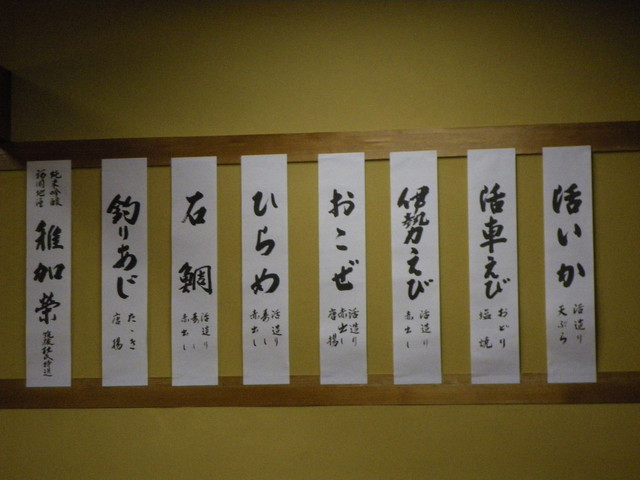 活いか
活造り
天ぷら
活車えび
おどり
塩焼
伊勢えび
活造り
赤出し
おこぜ
活造り
赤出し
唐揚
ひらめ
活造り
寿し
赤出し
石鯛
活造り
寿し
赤出し
釣りあじ
たゝき
唐揚
純米吟醸
福岡地酒
稚加榮